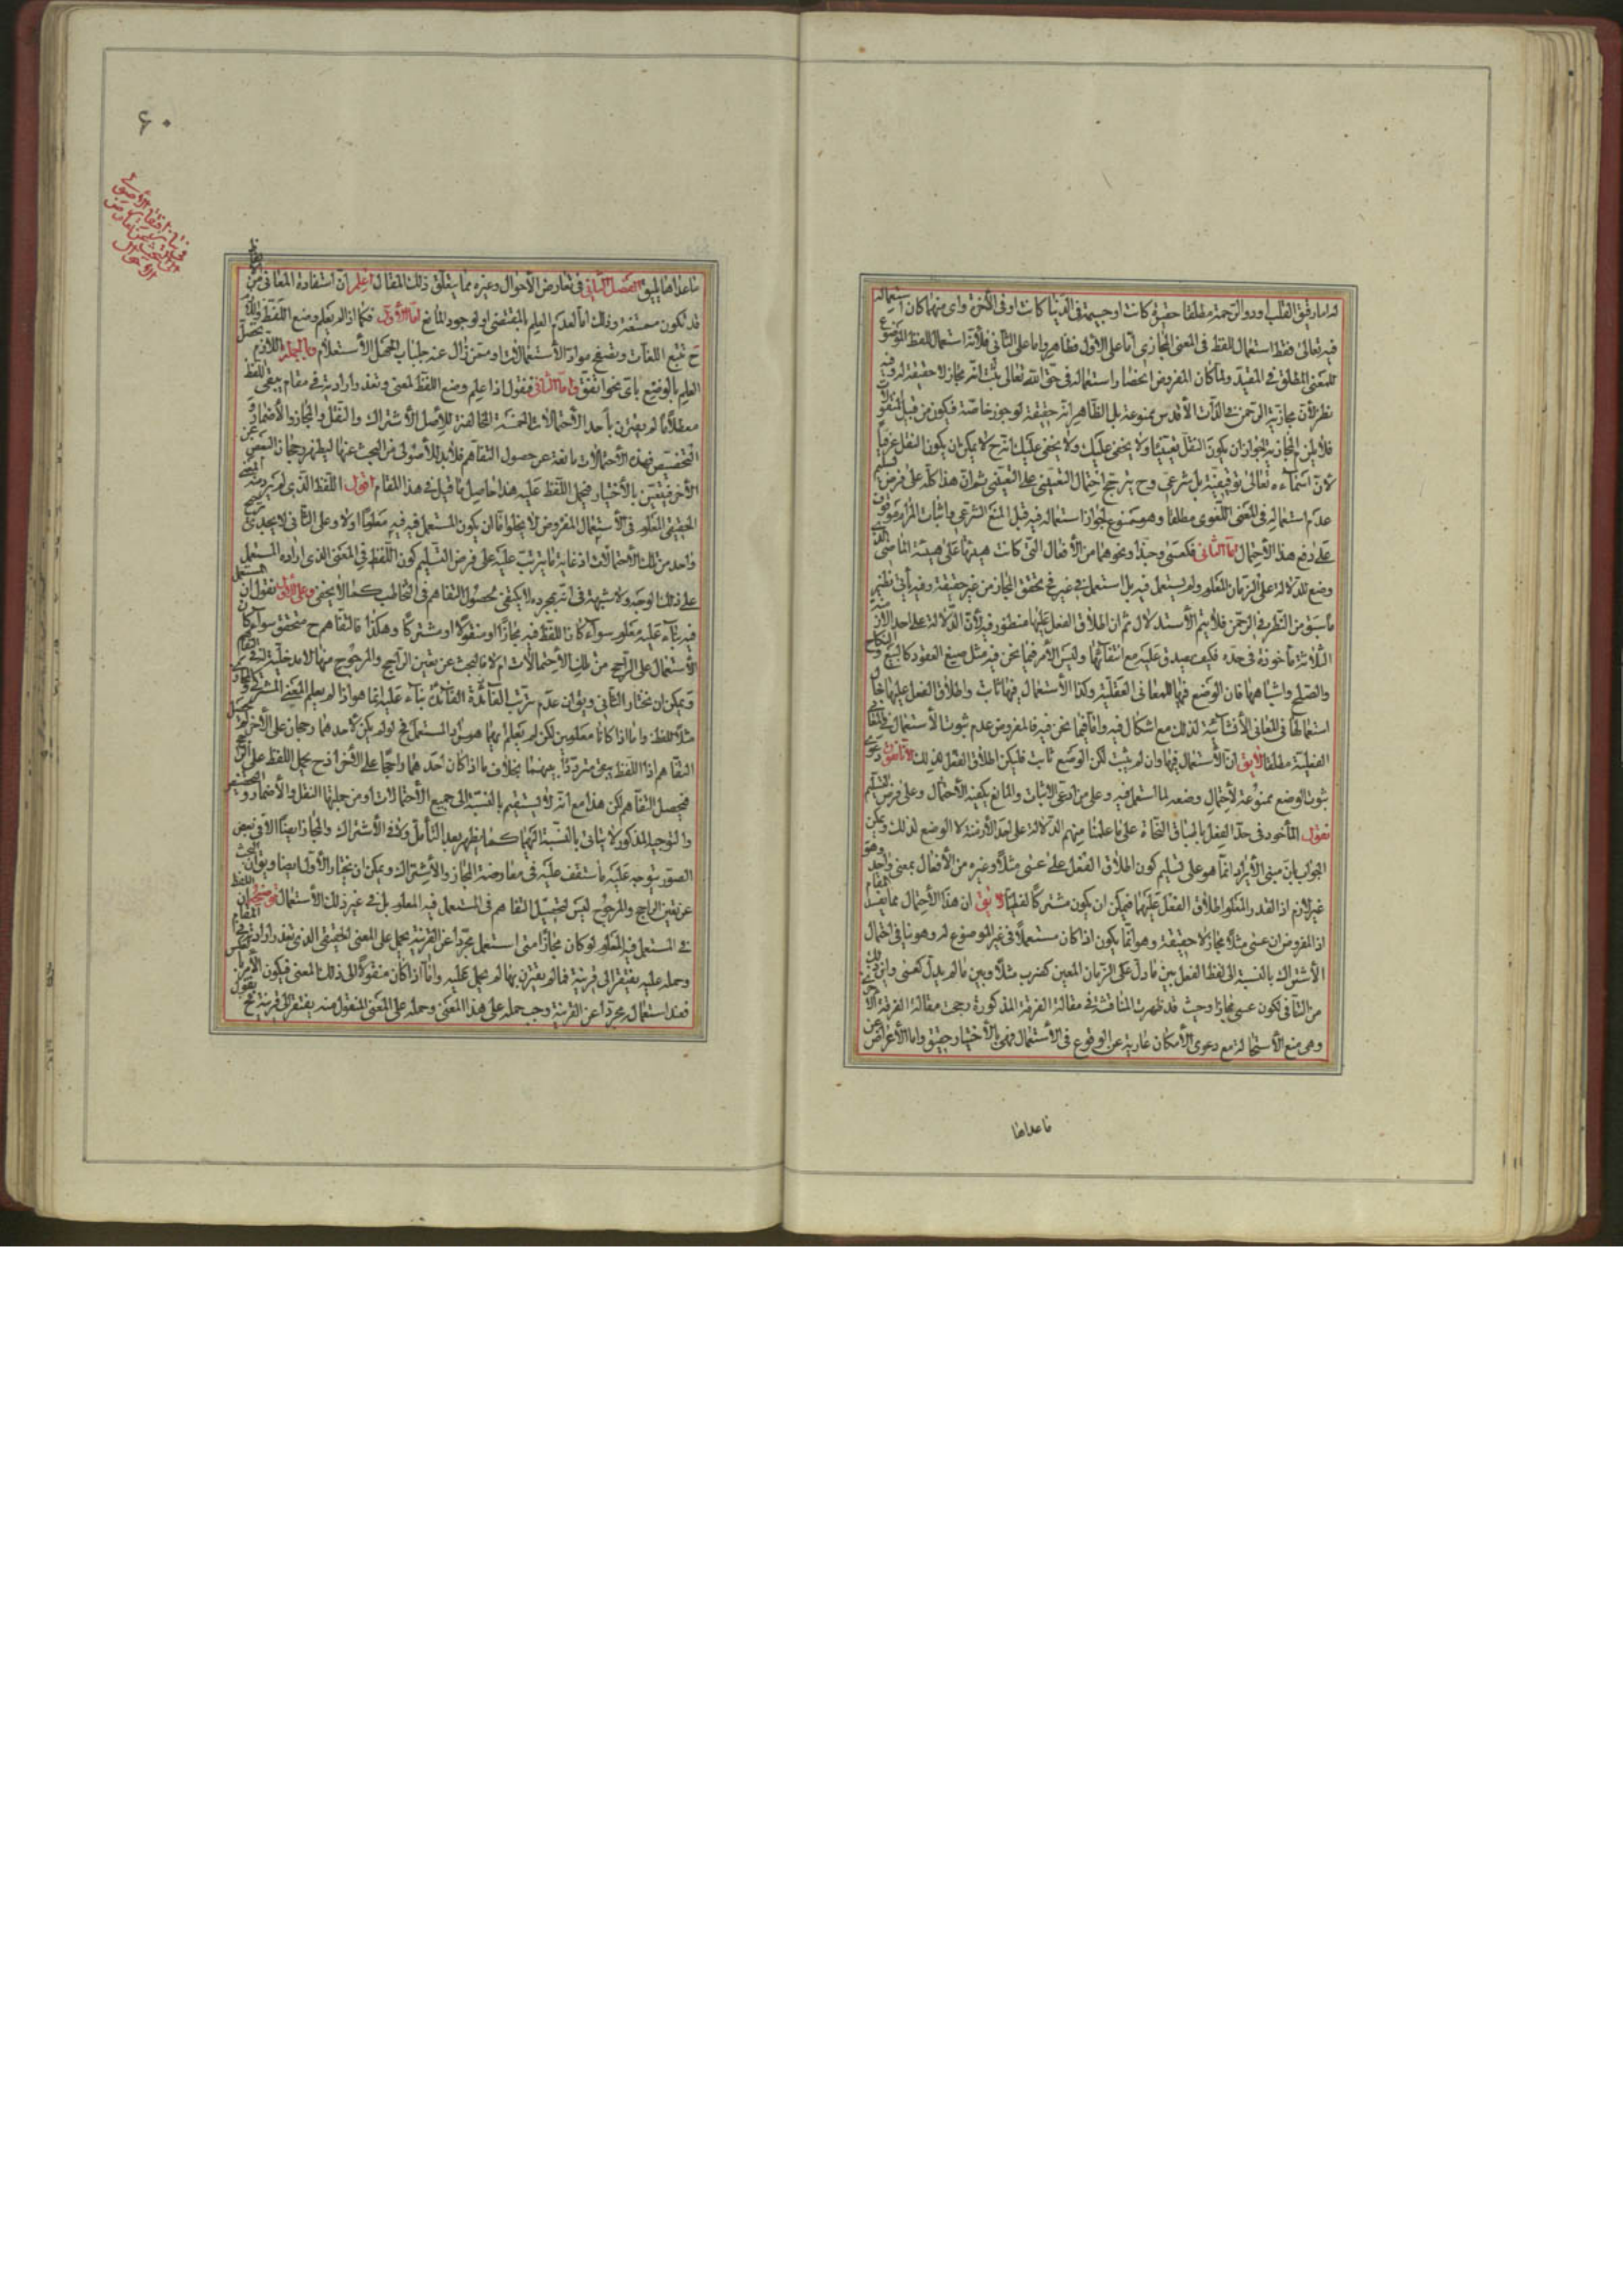 له امارقيق القلب او ذو الرحمة مطلقا حقيرة كانت او جسيمة في الدنيا كانت او في الآخرة واي منهما كان استعماله
فيه تعالى فقط استعمال للفظ في المعنى المجازي اما على الاول فظاهر واما على الثاني فلانه استعمال للفظ الموضوع
للمعنى المطلق في المقيد ولما كان المفروض انحصار استعماله في حق الله تعالى ثبت انه مجاز لا حقيقة له وفيه
نظر لان مجازية الرحمن في الذات الأقدس ممنوعة بل الظاهر انه حقيقة لوجوه خاصة فيكون من قبيل المنقول
فلا يلزم المجازية لجواز ان يكون النقل تعينيا ولا يخفى عليك ولا يخفى عليك انه ح لا يمكن ان يكون النقل عرفيا
لان اسماءه تعالى توقيفية بل شرعي وح يترجح احتمال التعييني على التعيني ثم ان هذا كله على فرض تسليم
عدم استعماله في المعنى اللغوي مطلقا وهو ممنوع لجواز استعماله فيه قبل المنع الشرعي واثبات المرام موقوف
على دفع هذا الاحتمال اما الثاني فكعسى وحبذا ونحوهما من الافعال التي كانت هيئتها على هيئة الماضي الذي
وضع للدلالة على الزمان المعلوم ولم يستعمل فيه بل استعمل في غيره فح تحقق المجاز من غير حقيقة وفيه يأتي نظير
ما سبق من النظر في الرحمن فلا يتم الاستدلال ثم ان اطلاق الفعل عليها منظور فيه لان الدلالة على احد الازمنة
الثلاثة مأخوذة في حده فكيف يصدق عليه مع انتفائها وليس الأمر فيما نحن فيه مثل صيغ العقود كالبيع والنكاح
والصلح واشباهها فان الوضع فيها للمعاني الفعلية وكذا الاستعمال فيها ثابت واطلاق الفعل عليها حال
استعمالها في المعاني الانشائية لذلك مع اشكال فيه واما فيما نحن فيه فالمفروض عدم ثبوت الاستعمال في المعاني
الفعلية مطلقا لا يق ان الاستعمال فيها وان لم يثبت لكن الوضع ثابت فليكن اطلاق الفعل لذلك لانا نقول دعوى
ثبوت الوضع ممنوعة لاحتمال وضعه لما استعمل فيه وعلى من ادعى الاثبات والمانع يكفيه الاحتمال وعلى فرض التسليم
نقول المأخوذ في حد الفعل باطباق النحاة على ما علمنا منهم الدلالة على احد الازمنة لا الوضع لذلك ويمكن
الجواب بان مبنى الايراد انما هو على تسليم كون اطلاق الفعل على عسى مثلا وغيره من الافعال بمعنى واحد وهو
غير لازم اذ القدر المعلوم اطلاق الفعل عليها فيمكن ان يكون مشتركا لفظيا لا يق ان هذا الاحتمال مما يفسد المقام
اذ المفروض ان عسى مثلا مجاز لا حقيقة وهو انما يكون اذا كان مستعملا في غير الموضوع له وهو ينافي احتمال
الاشتراك بالنسبة الى لفظ الفعل بين ما دل على الزمان المعين كضرب مثلا وبين ما لم يدل كعسى واين ذلك
من التنافي لكون عسى مجازا وحيث قد ظهرت المناقشة في مقالة الفرقة المذكورة رجحت مقالة الفرقة الاخرى
وهي منع الاستحالة مع دعوى الامكان عارية عن الوقوع في الاستعمال فهي بالاختيار حقيق واما الاعراض عن
ما عداها
۶۰
ما عداها يليق الفصل الثاني في تعارض الاحوال وغيره مما يتعلق ذلك المقال اعلم ان استفادة المعاني من
قد تكون ممتنعة وذلك اما لعدم العلم بالمقتضي او لوجود المانع اما الأول فكما اذا لم يعلم وضع اللفظ
ح تتبع اللغات وتصفح موارد الاستعمالات او ممن زال عنه جلباب الجهل الاستعلام وبالجملة اللازم تحصيل
العلم بالوضع باي نحو اتفق واما الثاني فنقول اذا علم وضع اللفظ لمعنى وتعذر ارادته في مقام يبقى اللفظ
معطلا ما لم يقترن بأحد الاحتمالات الخمسة المخالفة للاصل الاشتراك والنقل والمجاز والاضمار و
التخصيص فهذه الاحتمالات مانعة عن حصول التفاهم فلا بد للاصولي من البحث عنها ليظهر رجحان البعض عن
الآخر فيتعين بالاختيار فيحمل اللفظ عليه هذا حاصل ما قيل في هذا المقام اقول اللفظ الذي لم يرد منه المعنى
الحقيقي المعلوم في الاستعمال المفروض لا يخلو اما ان يكون المستعمل فيه فيه معلوما او لا وعلى الثاني لا يجدي ترجيح
واحد من تلك الاحتمالات اذ غاية ما يترتب عليه على فرض التسليم كون اللفظ في المعنى الذي اراده المستعمل
على ذلك الوجه ولا شبهة في انه بمجرده لا يكتفى لحصول التفاهم في التخاطب كما لا يخفى وعلى الاول نقول ان المستعمل
فيه بناء عليه معلوم سواء كان اللفظ فيه مجازا او منقولا او مشتركا وهكذا فالتفاهم ح متحقق سواء كان
الاستعمال على الراجح من تلك الاحتمالات ام لا فالبحث عن تعين الراجح والمرجوح منها لا مدخلية له في التفاهم
ويمكن ان نختار الثاني ويق ان عدم ترتب الفائدة بناء عليه انما هو اذا لم يعلم المعنى المشترك والمجازي
مثلا للفظ واما اذا كانا معلومين لكن لم يعلم ايهما هو من المستعمل فح لو لم يكن لاحدهما رجحان على الآخر لم يحصل
التفاهم اذ اللفظ يبقى مترددا بينهما بخلاف ما اذا كان احدهما راجحا على الآخر اذ ح يحمل اللفظ على الراجح
فيحصل التفاهم لكن هذا مع انه لا يستقيم بالنسبة الى جميع الاحتمالات اذ من جملتها النقل والاضمار والتخصيص
والتوجيه المذكور لا يتاتى بالنسبة اليها كما يظهر بعد التأمل ولا في الاشتراك والمجاز ايضا الا في بعض
الصور يتوجه عليه ما ستقف عليه في معارضة المجاز والاشتراك ويمكن ان يختار الأول ايضا ويق ان البحث
عن تعين الراجح والمرجوح ليس لتحصيل التفاهم في المستعمل فيه المعلوم بل في غير ذلك الاستعمال توضيحه ان اللفظ
في المستعمل فيه المعلوم لو كان مجازا متى استعمل مجردا عن القرينة يحمل على المعنى الحقيقي الذي تعذر ارادته في هذا المقام
وحمله عليه يفتقر الى قرينة فما لم يقترن بها لم يحمل عليه واما اذا كان منقولا الى ذلك المعنى فيكون الأمر بالعكس
فعند استعماله مجردا عن القرينة وجب حمله على هذا المعنى وحمله على المعنى المنقول منه يفتقر الى قرينة فح نقول